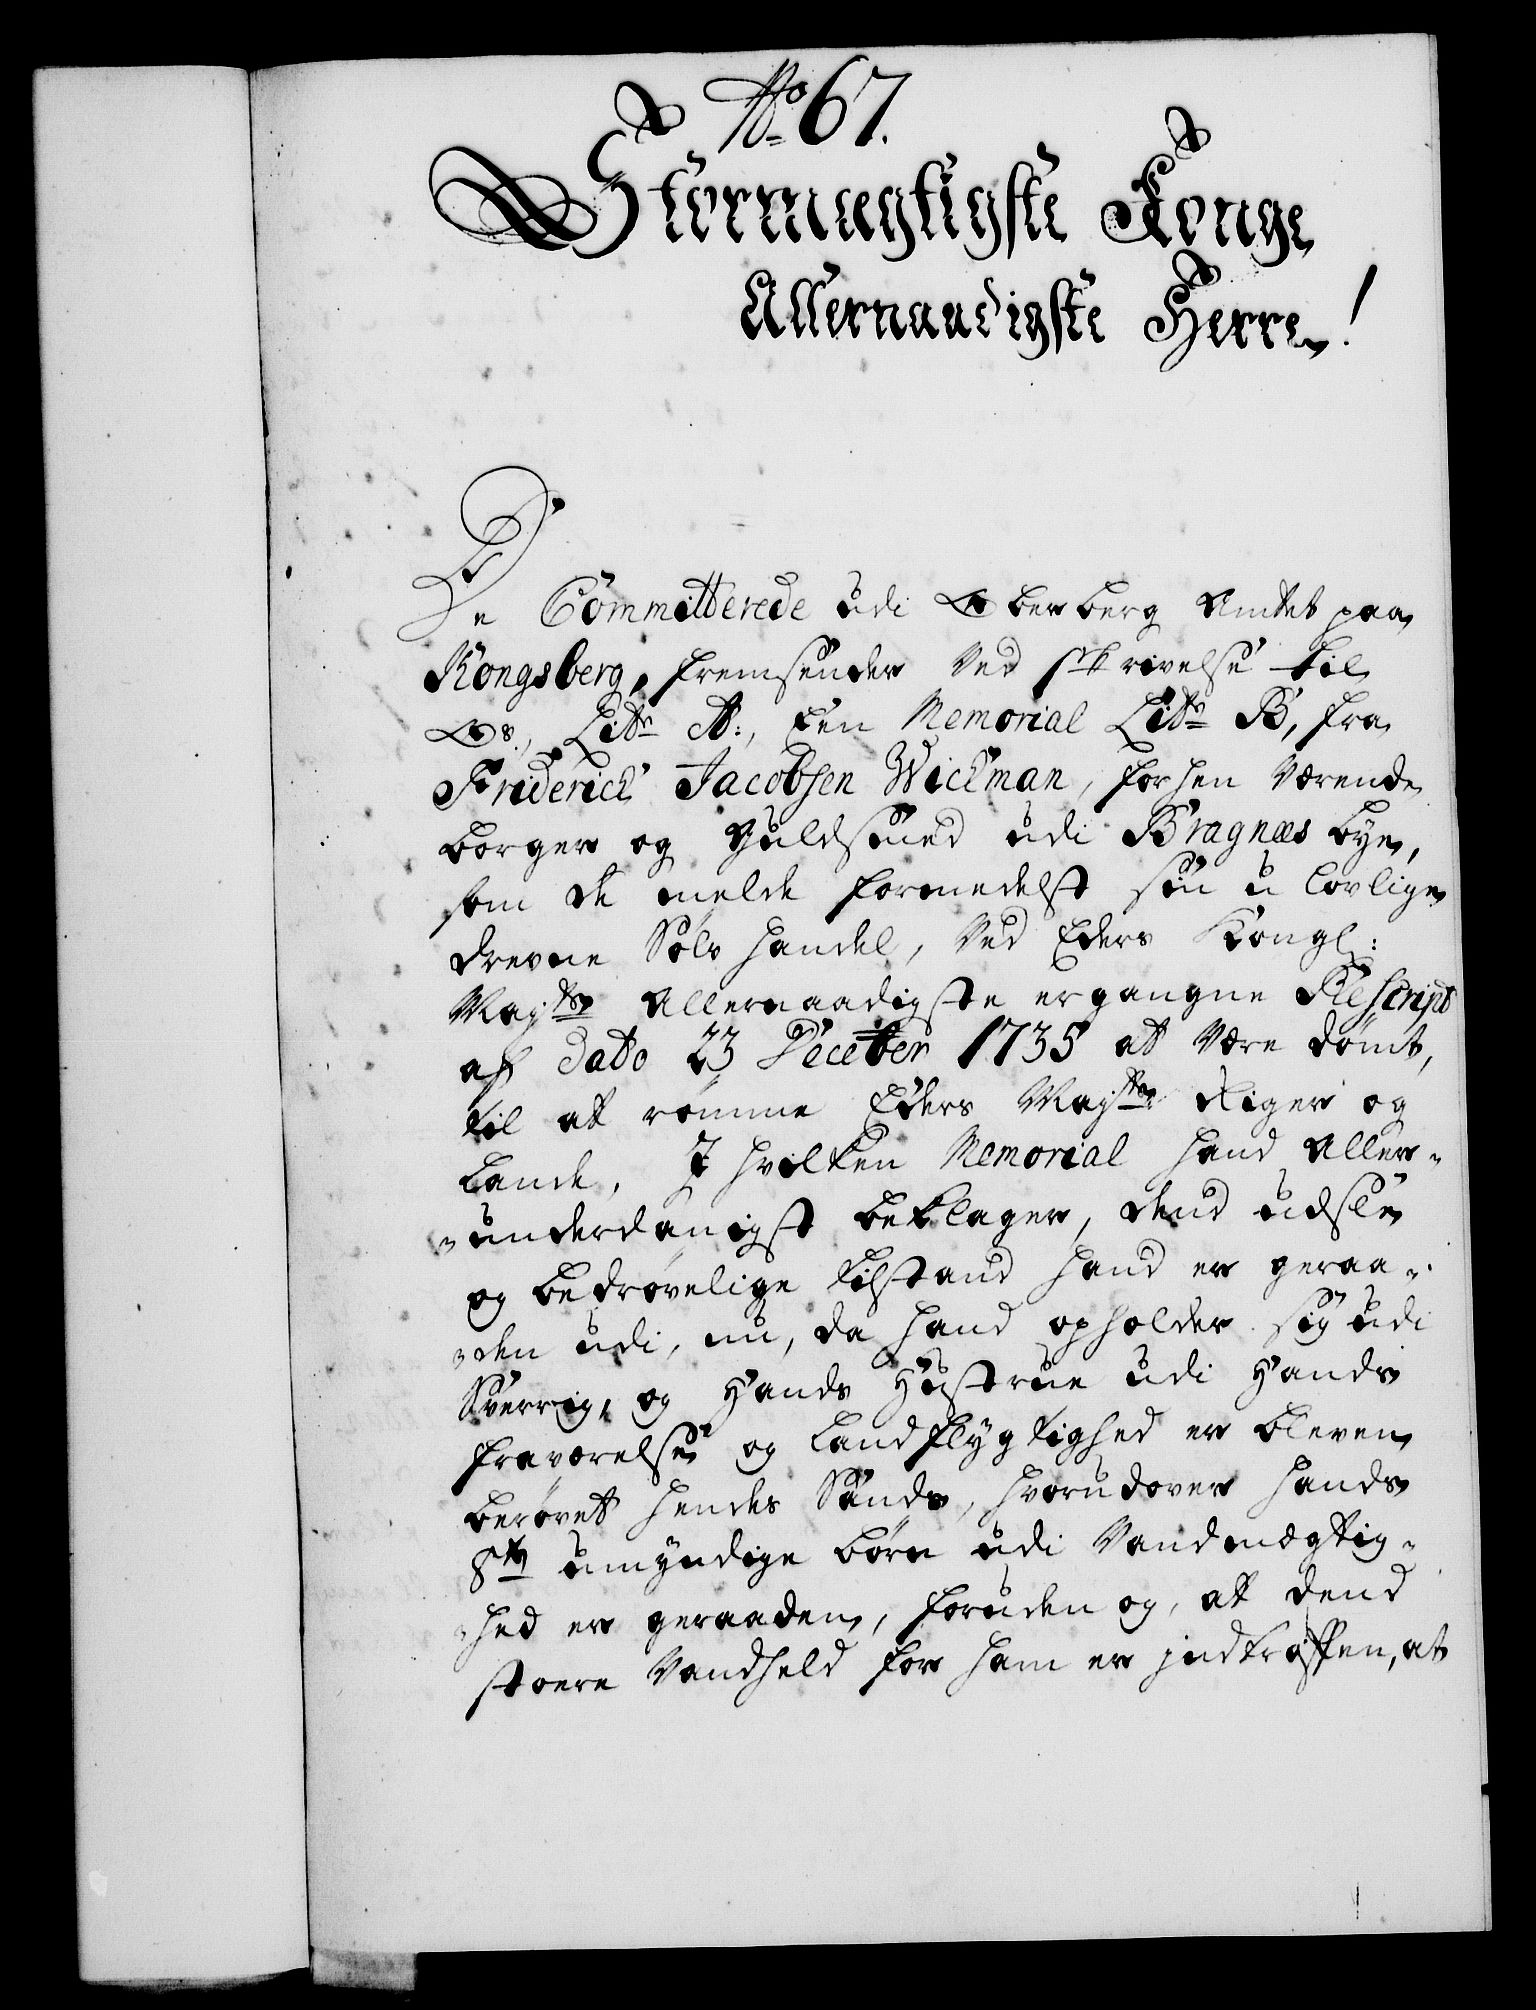 No 67.
Stormægtigste Konge
Allernaadigste Herre!
De Committerede udi Oberberg Amtet paa
Kongsberg, fremsender ved skrivelse til
Os, Litr A:, Een Memorial Litr B, fra
Friderich Jacobsen Wickman, forhen værende
borger og Guldsmed udi Bragnæs bye,
som de melde formedelst sin u lovlige
drevne Sølv handel, ved Eders Kongl:
Mayts Allernaadigste ergangne Rescript
af Dato 23 Decembr 1735 at være dømt,
til at rømme Eders Mayts Riger og
Lande, I hvilken Memorial hand Aller-
-underdanigst beklager, dend udslé
og bedrøvelige tilstand hand er geraa-
-den udi, nu, da hand opholder sig udi
Sverrig, og Hands Hustrue udi Hands
fraværelse og Landflygtighed er bleven
berøvet hendes Sands, hvorudover hands
8te umyndige børn udi Vandmægtig-
-hed er geraaden, foruden og, at dend
stoere Vandheld for ham er indtroffen, at